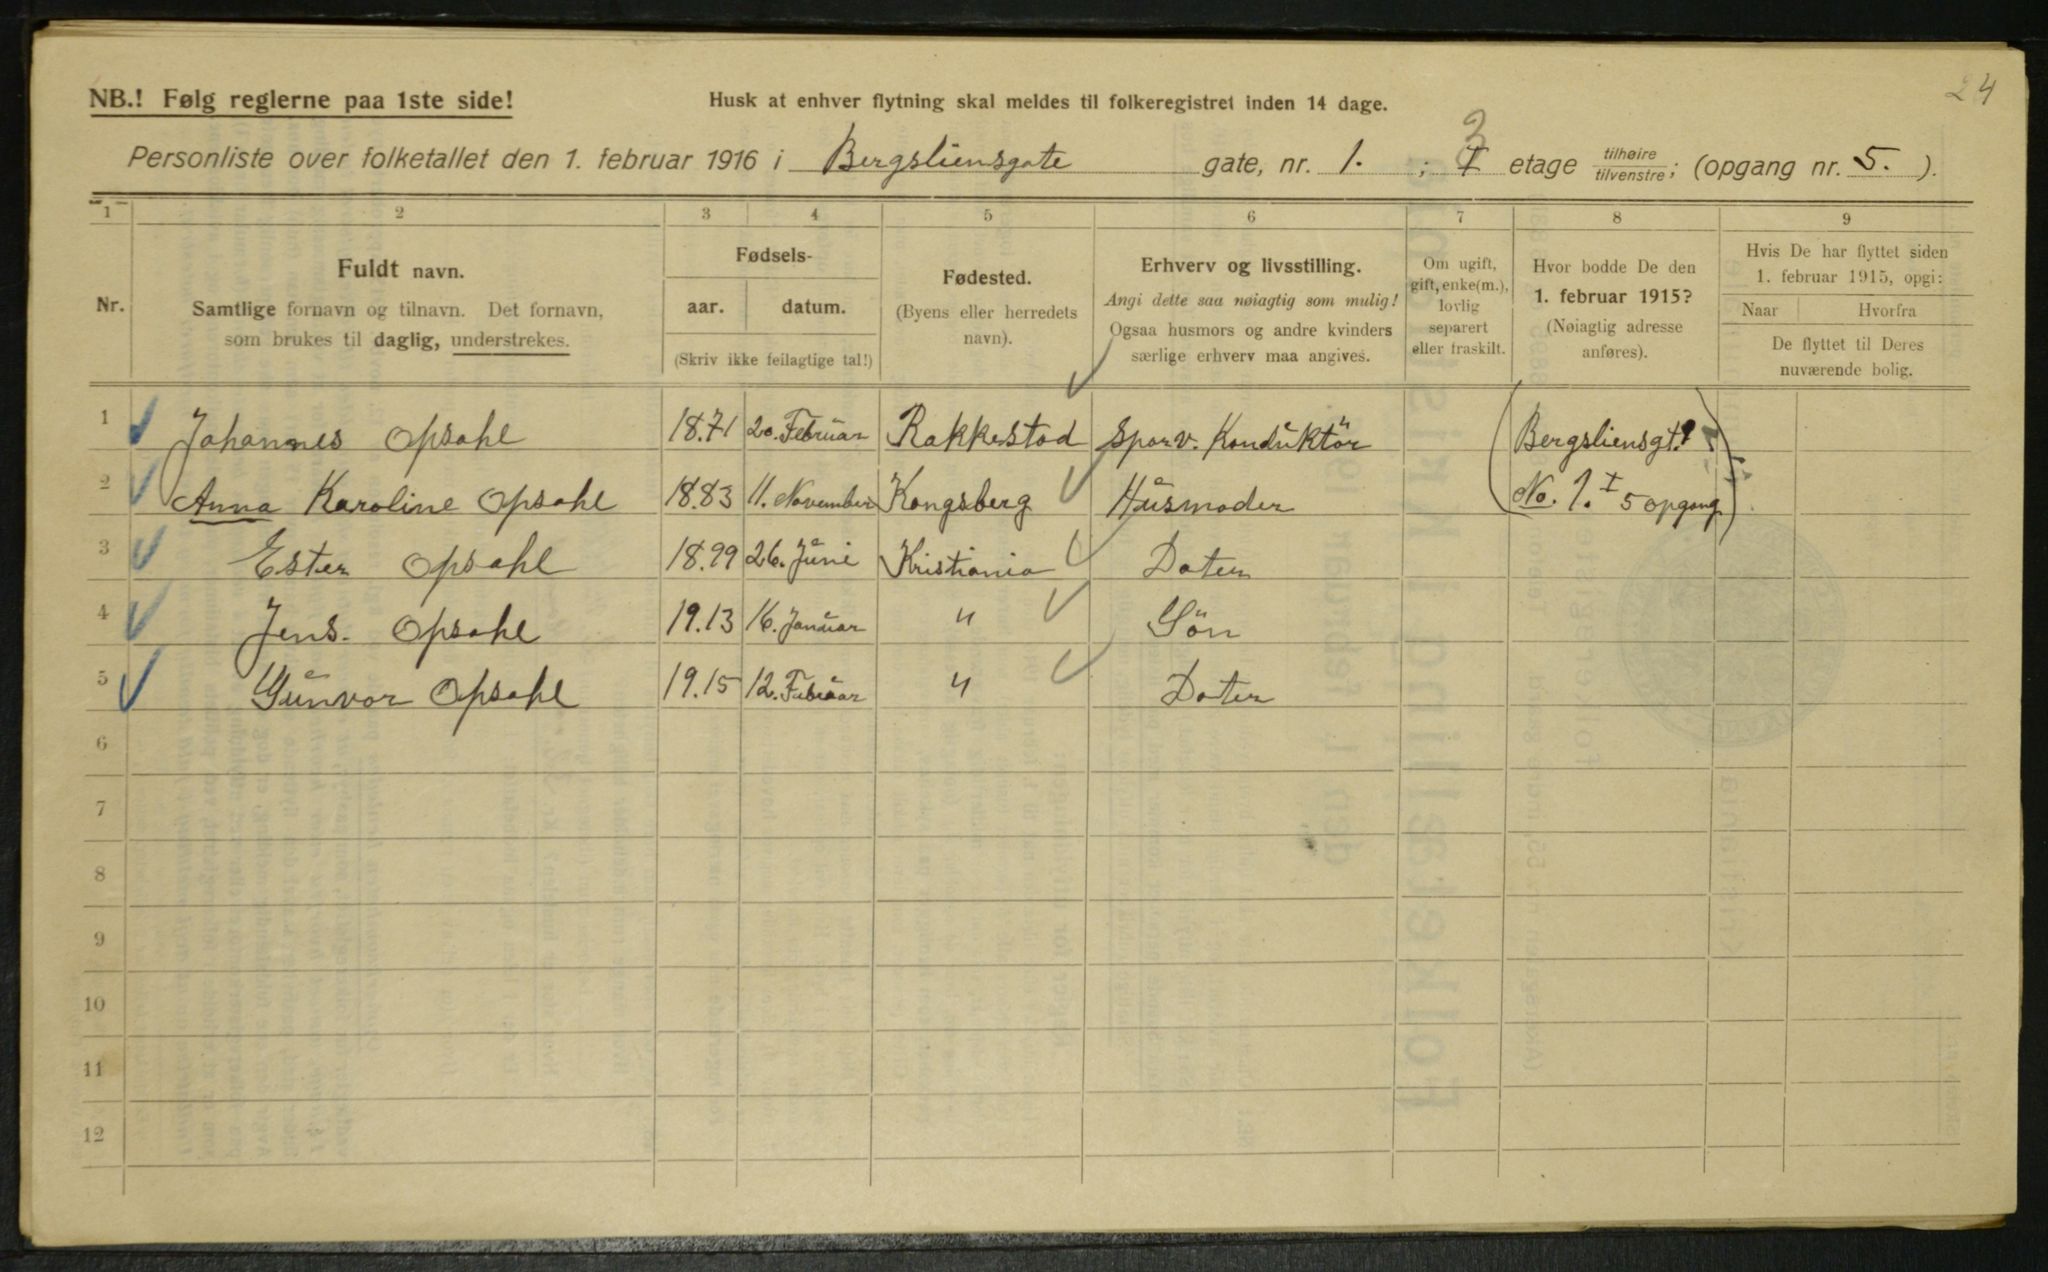 24
NB.! Følg reglerne paa 1ste side!
Husk at enhver flytning skal meldes til folkeregistret inden 14 dage.
Personliste over folketallet den 1. februar 1916 i Bergsliensgate gate, nr. 1. ; I 2 etage tilhøire tilvenstre; (opgang nr. 5. ).
1 2 3 4 5 6 7 8 9
Nr.
Fuldt navn.
Samtlige fornavn og tilnavn. Det fornavn,
som brukes til daglig, understrekes.
Fødsels-
aar. datum.
(Skriv ikke feilagtige tal!)
Fødested.
(Byens eller herredets
navn).
Erhverv og livsstilling.
Angi dette saa nøiagtig som mulig!
Ogsaa husmors og andre kvinders
særlige erhverv maa angives.
Om ugift,
gift, enke(m.),
lovlig
separert
eller fraskilt.
Hvor bodde De den
1. februar 1915?
(Nøiagtig adresse
anføres).
Hvis De har flyttet siden
1. februar 1915, opgi:
Naar Hvorfra
De flyttet til Deres
nuværende bolig.
1 Johannes Opsahl 18.71 20. Februar Rakkestad Sporv. Konduktör Bergsliensgt.
2 Anna Karoline Opsahl 18.83 11. November Kongsberg Husmoder No. 1. I 5 opgang
3 Ester Opsahl 18.99 26. Juni Kristiania Dater
4 Jens. Opsahl 19.13 16. Januar " Sön
5 Gunvor Opsahl 19.15 12. Februar " Dater
6
7
8
9
10
11
12